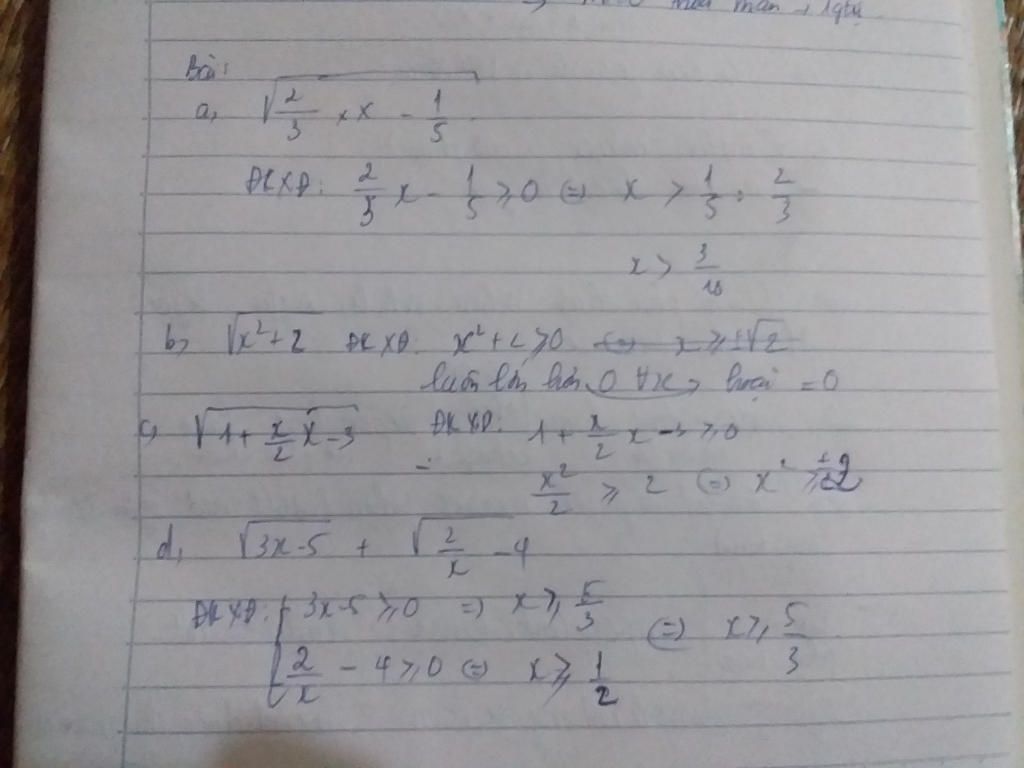 thỏa mãn
Bài:
a, √(2/3 × x - 1/5)
ĐKXĐ: 2/3 x - 1/5 ≥ 0 (=) x > 1/5 : 2/3
x > 3/10
b, √(x²+2) ĐKXĐ: x²+2 ≥ 0 (=) x ≥ ±√2
luôn lớn hơn 0 ∀x > hoặc = 0
c, √(1 + x/2 x - 3) ĐKXĐ: 1 + x/2 x - 3 ≥ 0
x²/2 ≥ 2 (=) x ≥ ±2
d, √(3x-5) + √(2/x - 4)
ĐKXĐ: { 3x-5 ≥ 0 => x ≥ 5/3 (=) x ≥ 5/3
2/x - 4 ≥ 0 (=) x ≥ 1/2